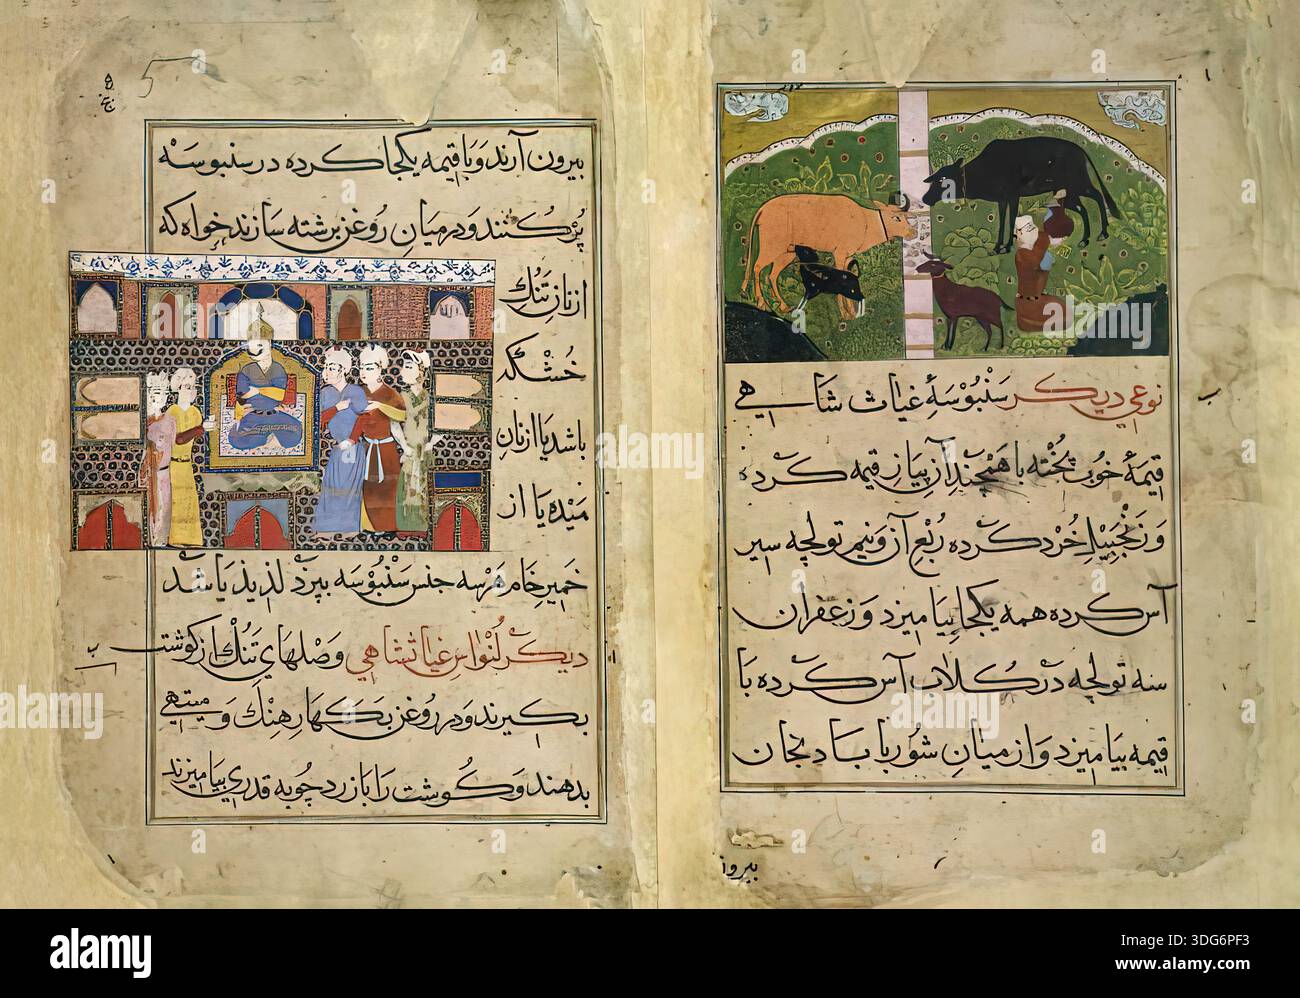 نوعی دیکر سنبوسهٔ غیاث شاهی
قیمهٔ خوب پخته با همچند آن پیاز قیمه کرده
و زنجبیل خرد کرده ربع آن و نیم تولچه سیر
آس کرده همه یکجا بیامیزد و زعفران
سه تولچه در کلاب آس کرده با
قیمه بیامیزد و از میان شوربا بادنجان
بیرون
بیرون آرند و با قیمه یکجا کرده در سنبوسه
پر کنند و در میان روغن برشته سازند خواه که
از نان تنک
خشکه
باشد یا از نان
میده یا از
خمیر خام هر سه جنس سنبوسه بپزد لذیذ باشد
دیکر لنواس غیاثشاهی وصلهای تنک از کوشت
بکیرند و در روغن بکهار هنک و میتهی
بدهند و کوشت را با زردچوبه قدری بیامیزند
alamy
Image ID: 3DG6PF3
www.alamy.com